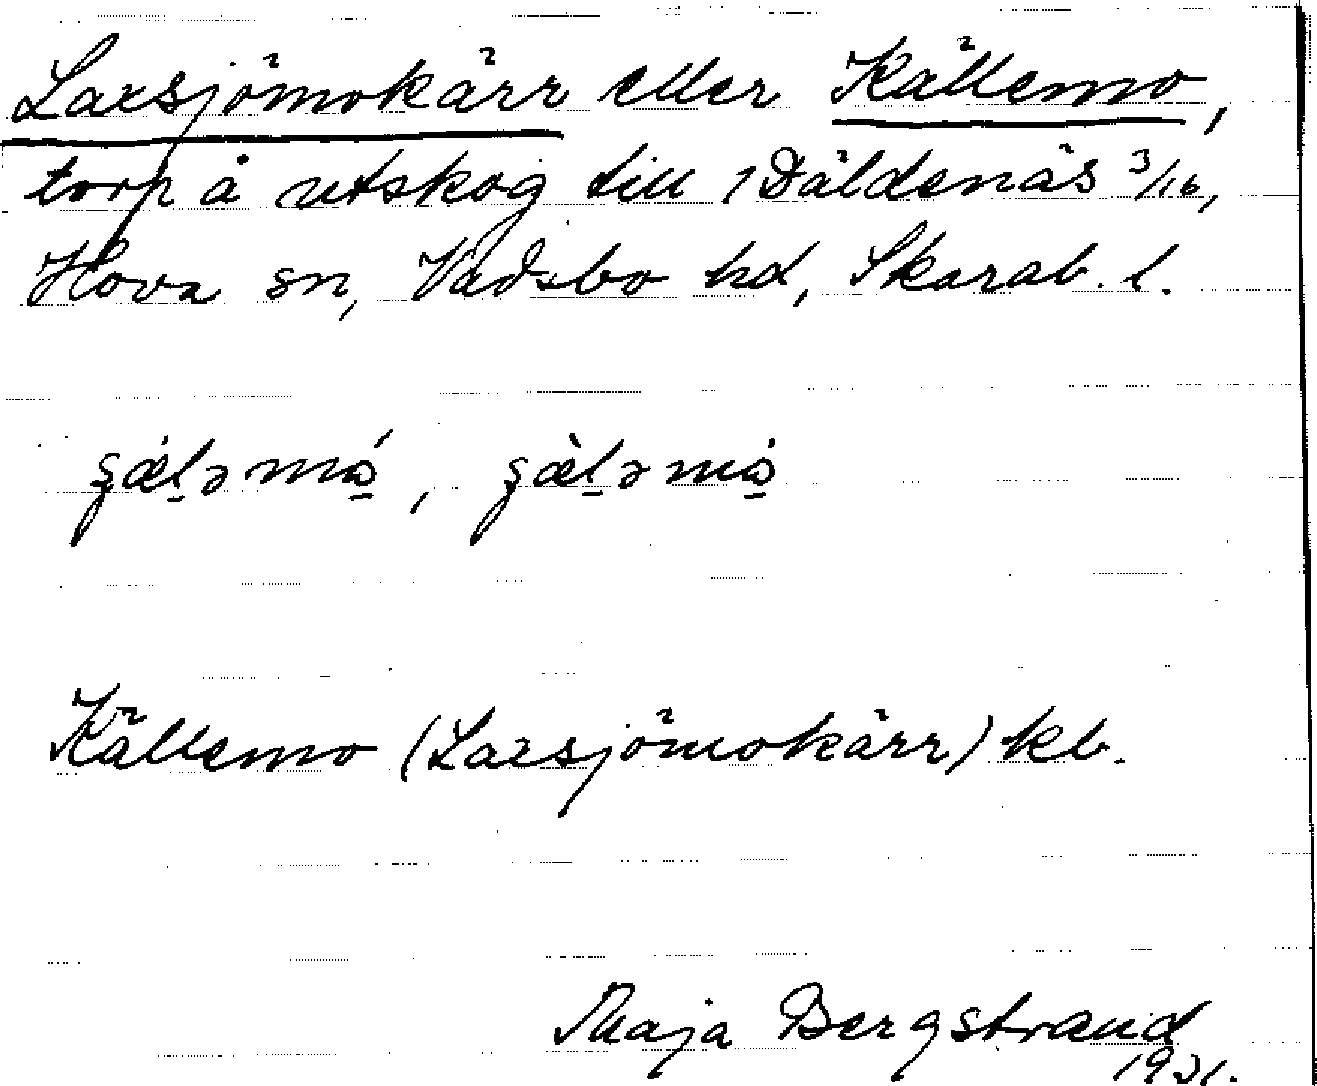 Laxsjömokärr eller Källemo,
torp å utskog till 1 Däldenäs 3/16,
Hova sn, Vadsbo hd, Skarab. l.
Källemo (Laxsjömokärr) kb.
Maja Bergstrand
1931.